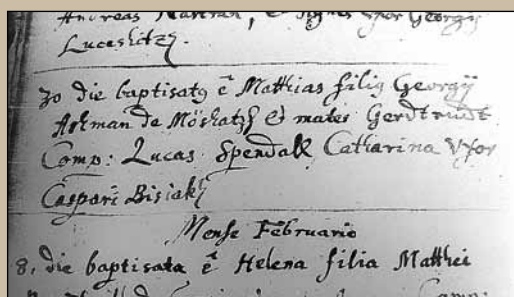 Andreas Kastran, & Agnes Vxor Georgij
Luceskitzj.
30 die baptisatq ẽ Matthias filiq Georgij
Askman de Möskatzh & mater Gerdtrudt
Comp: Lucas Spendall Catharina Vxor
Caspari Bisiakh
Mense Februario
8. die baptisata ẽ Helena filia Matthei